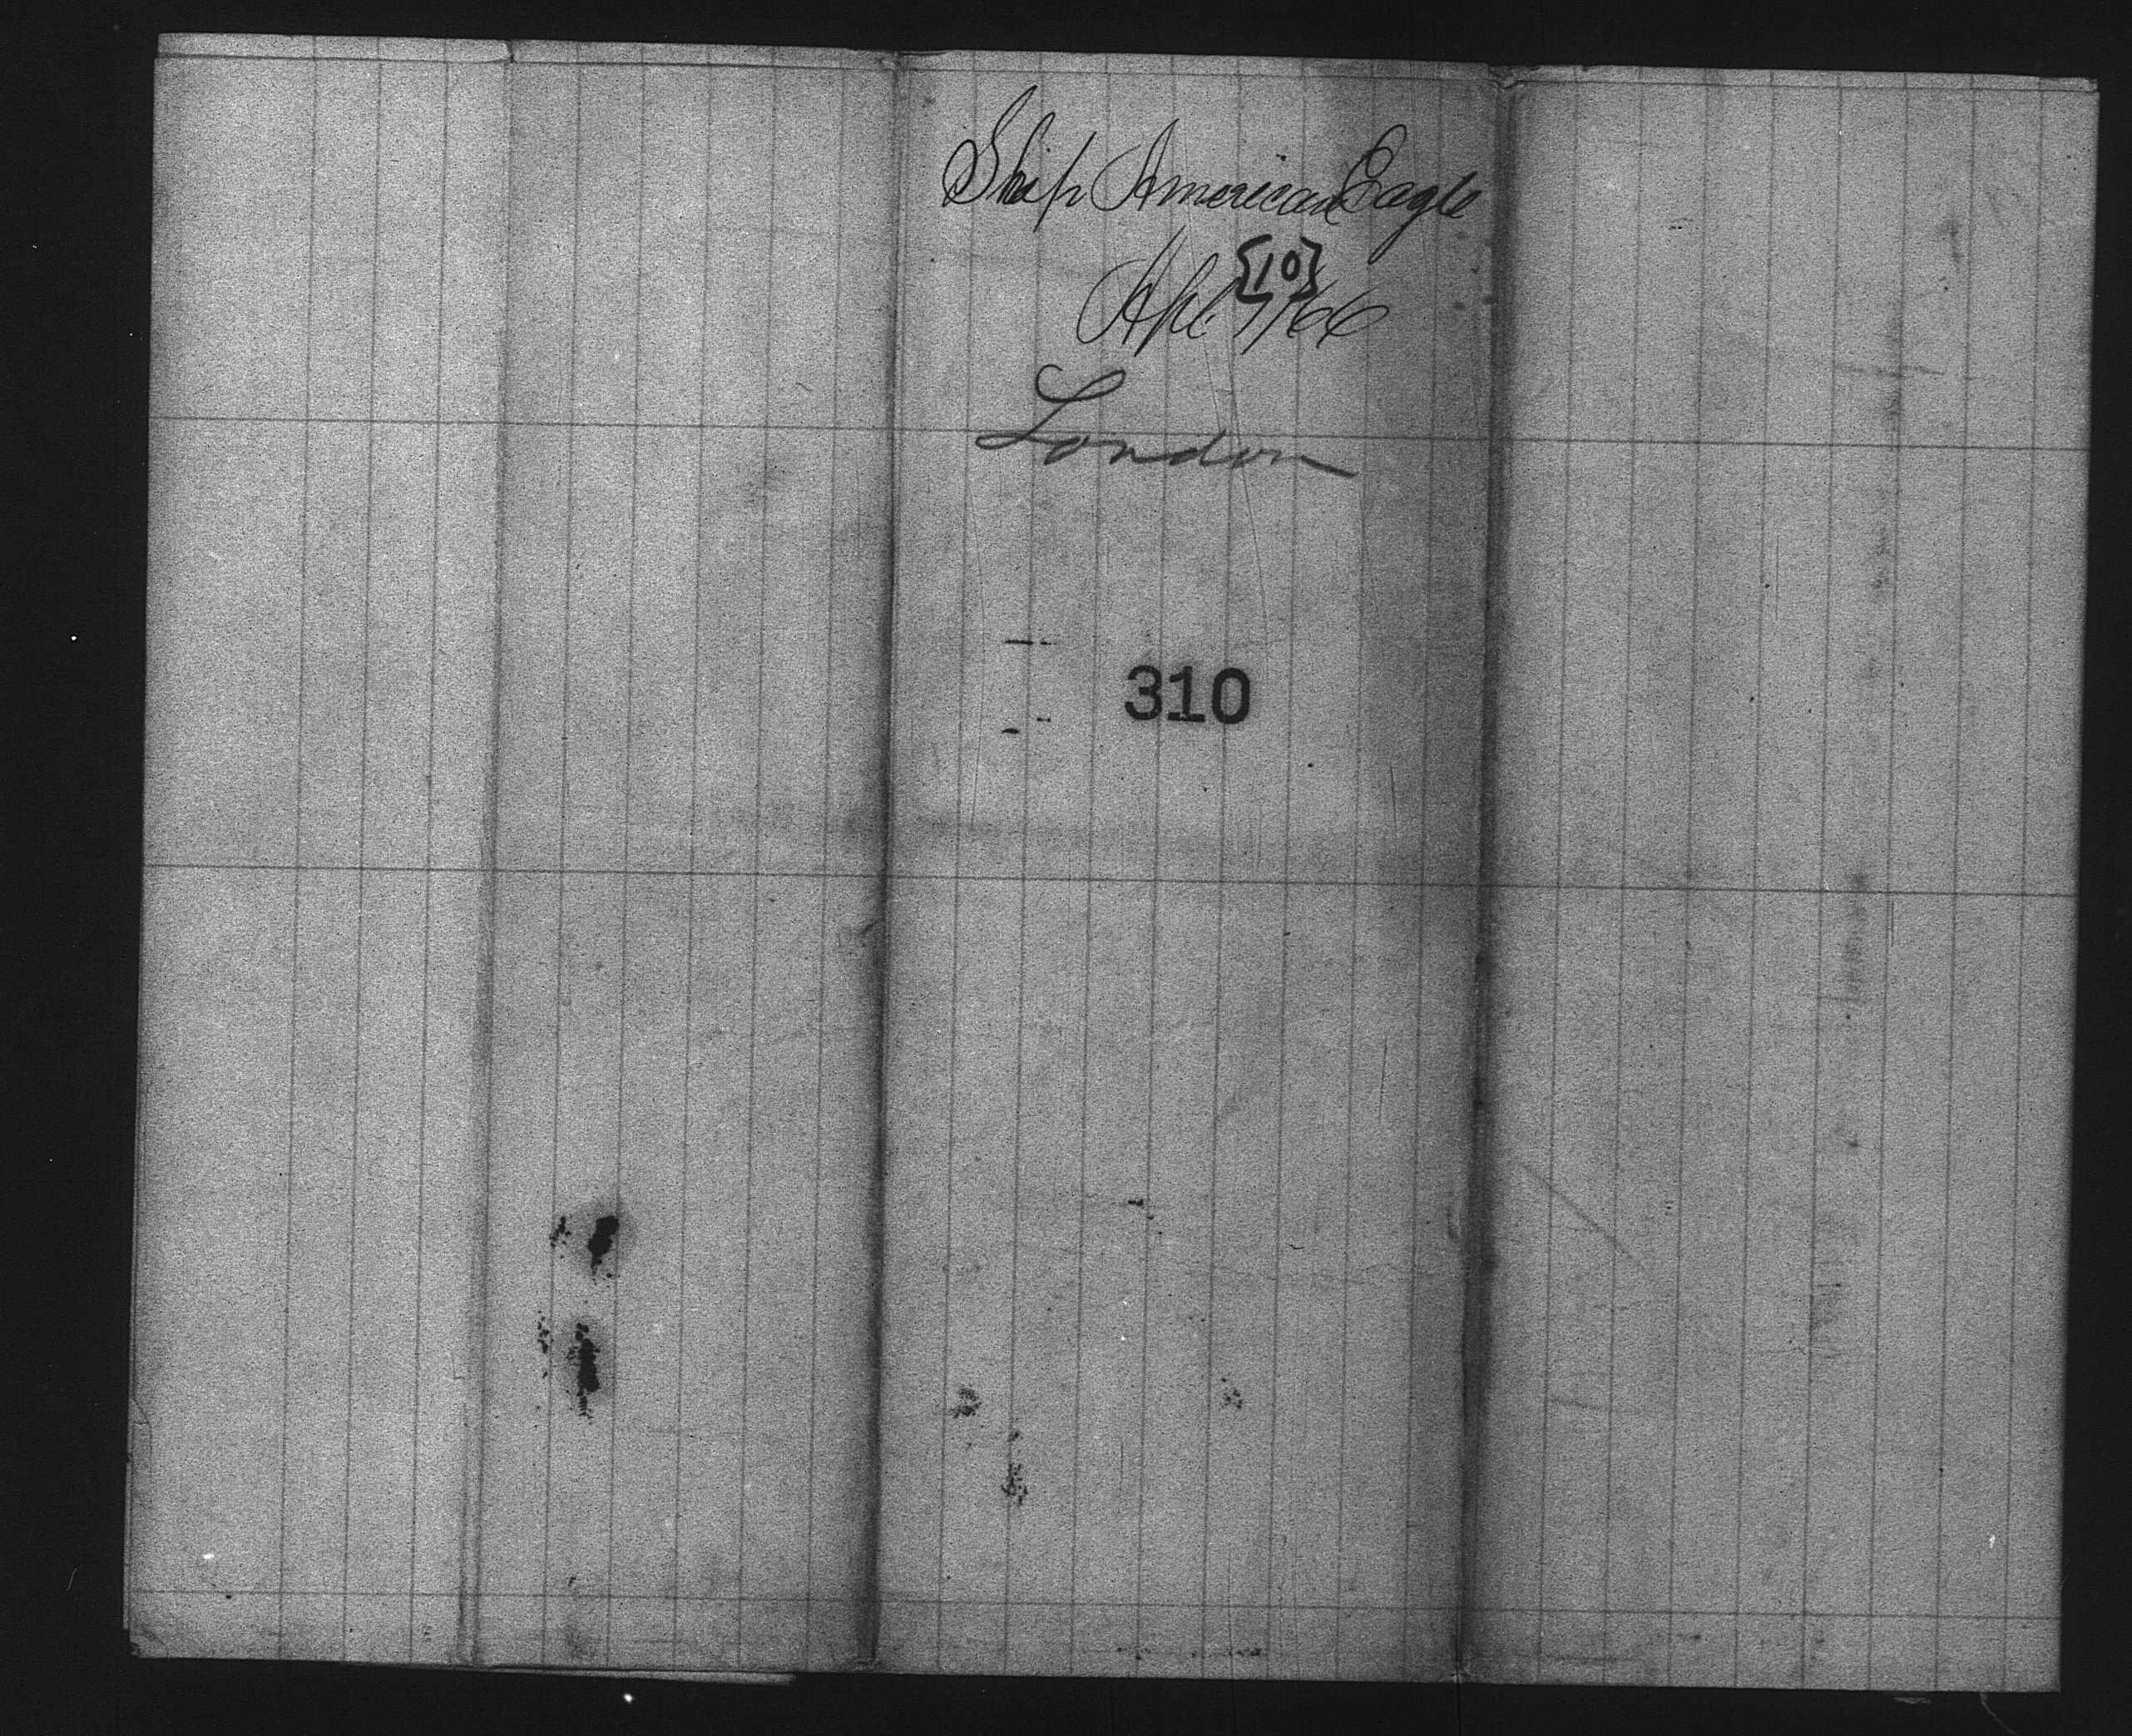 Ship American Eagle
{10}
Apl 9/66
London
310